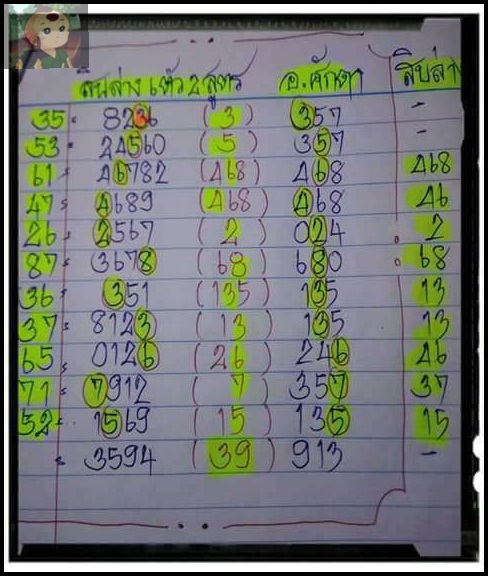 สิบล่าง เต๊ว 2 สูตร อ.ศักดา สิบล่า
35 = 8236 (3) 357 -
53 = 24560 (5) 357 -
61 = 46782 (468) 468 468
47 = 4689 (468) 468 46
26 = 2567 (2) 024 2
87 = 3678 (68) 680 68
36 = 351 (135) 135 13
37 = 8123 (13) 135 13
65 = 0126 (26) 246 46
71 = 7912 (7) 357 37
52 = 1569 (15) 135 15
= 3594 (39) 913 -